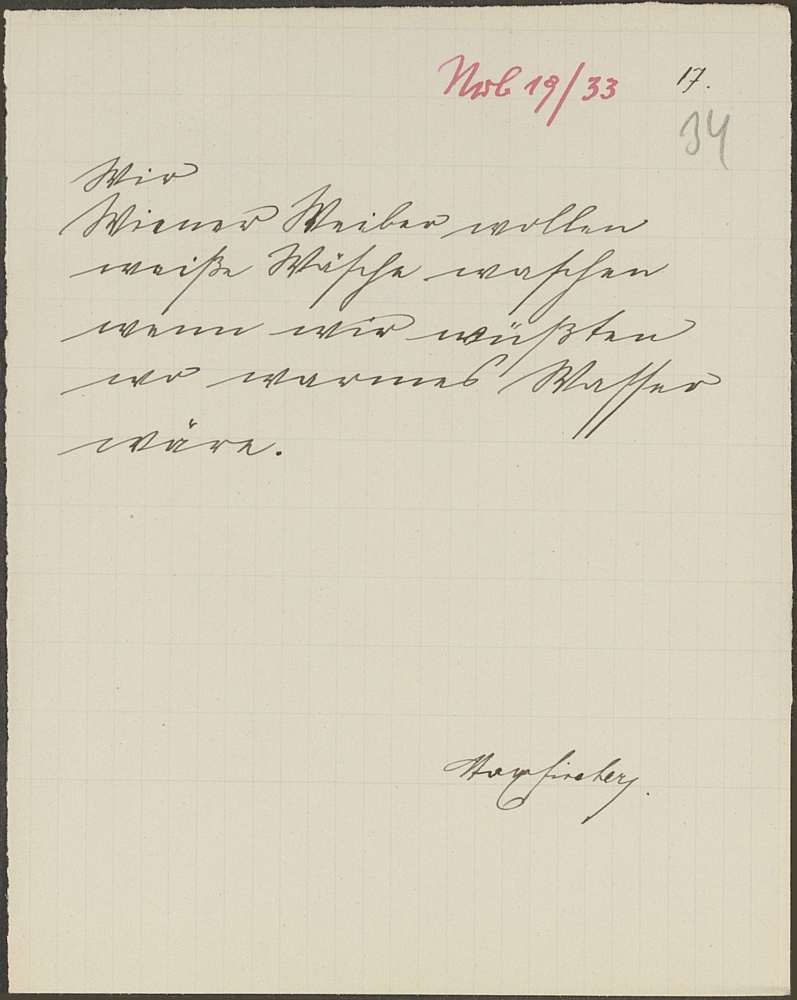 Nrb 19/33 17.
34
Wir
Wiener Weiber wollen
weiße Wäsche waschen
wenn wir wüßten
wo warmes Wasser
wäre.